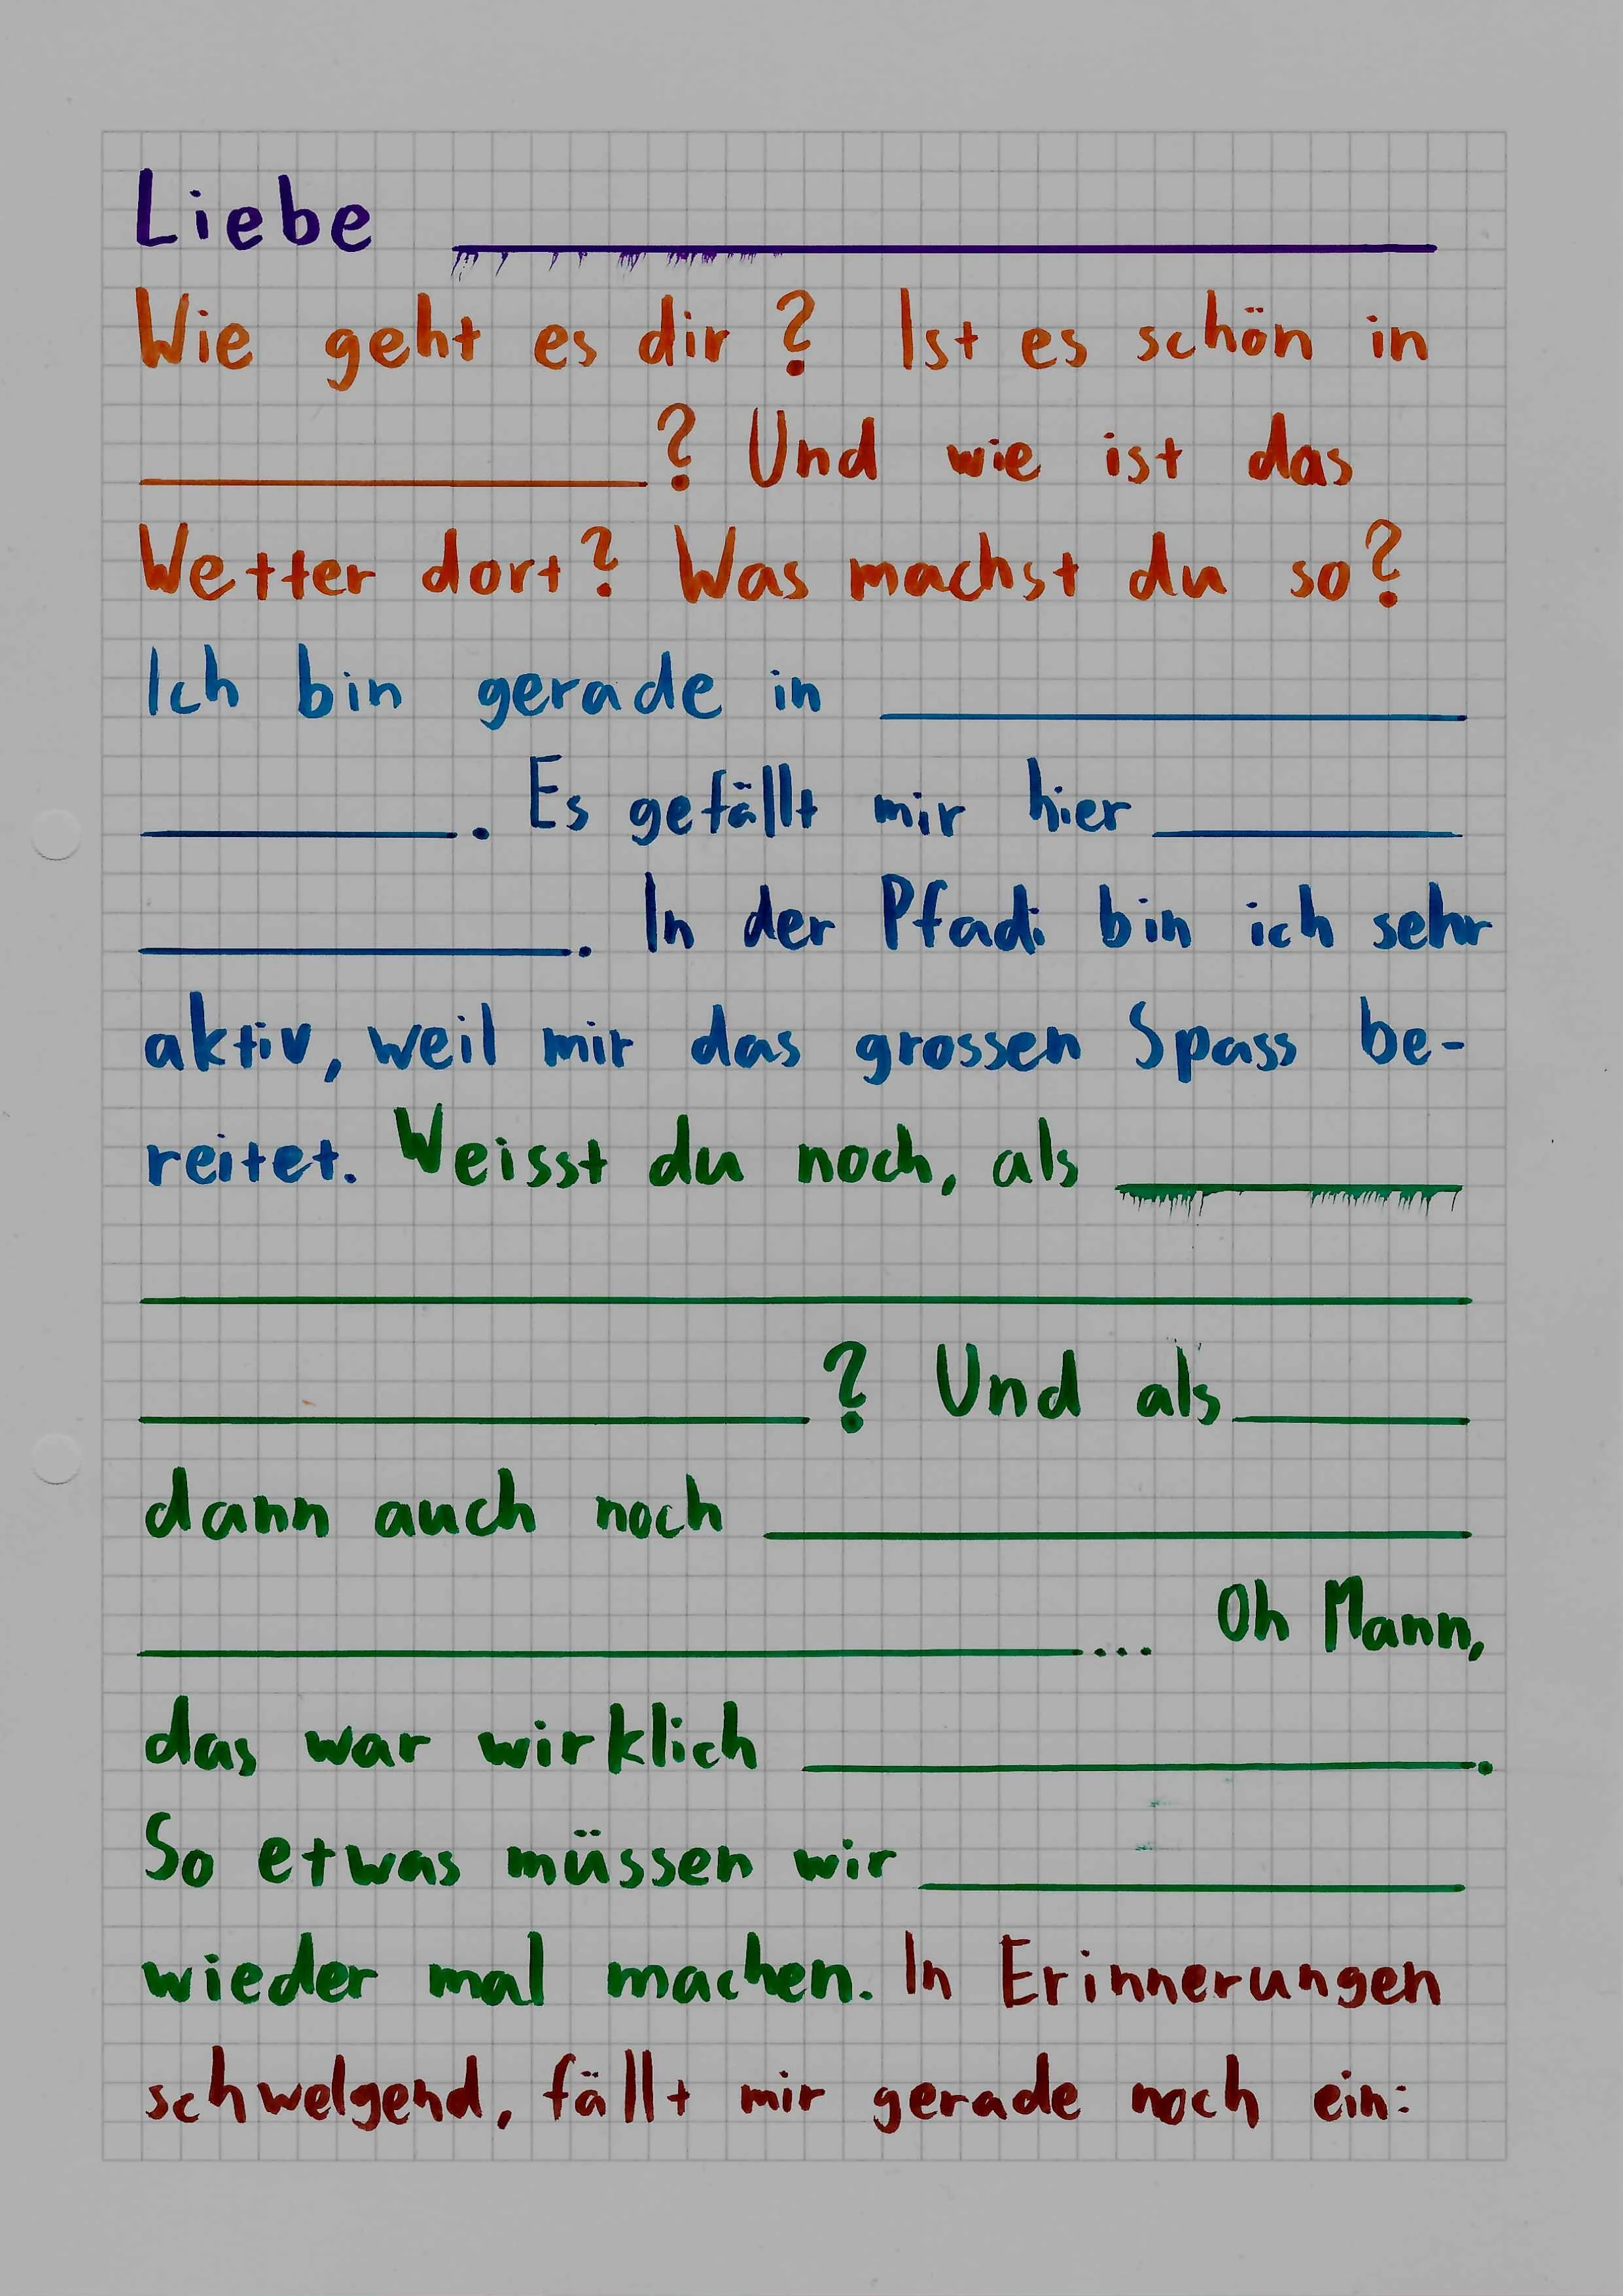 Liebe ____________
Wie geht es dir? Ist es schön in
____________? Und wie ist das
Wetter dort? Was machst du so?
Ich bin gerade in ____________
____________. Es gefällt mir hier ____________
____________. In der Pfadi bin ich sehr
aktiv, weil mir das grossen Spass be-
reitet. Weisst du noch, als ____________
____________
____________? Und als ____________
dann auch noch ____________
____________... Oh Mann,
das war wirklich ____________.
So etwas müssen wir ____________
wieder mal machen. In Erinnerungen
schwelgend, fällt mir gerade noch ein: